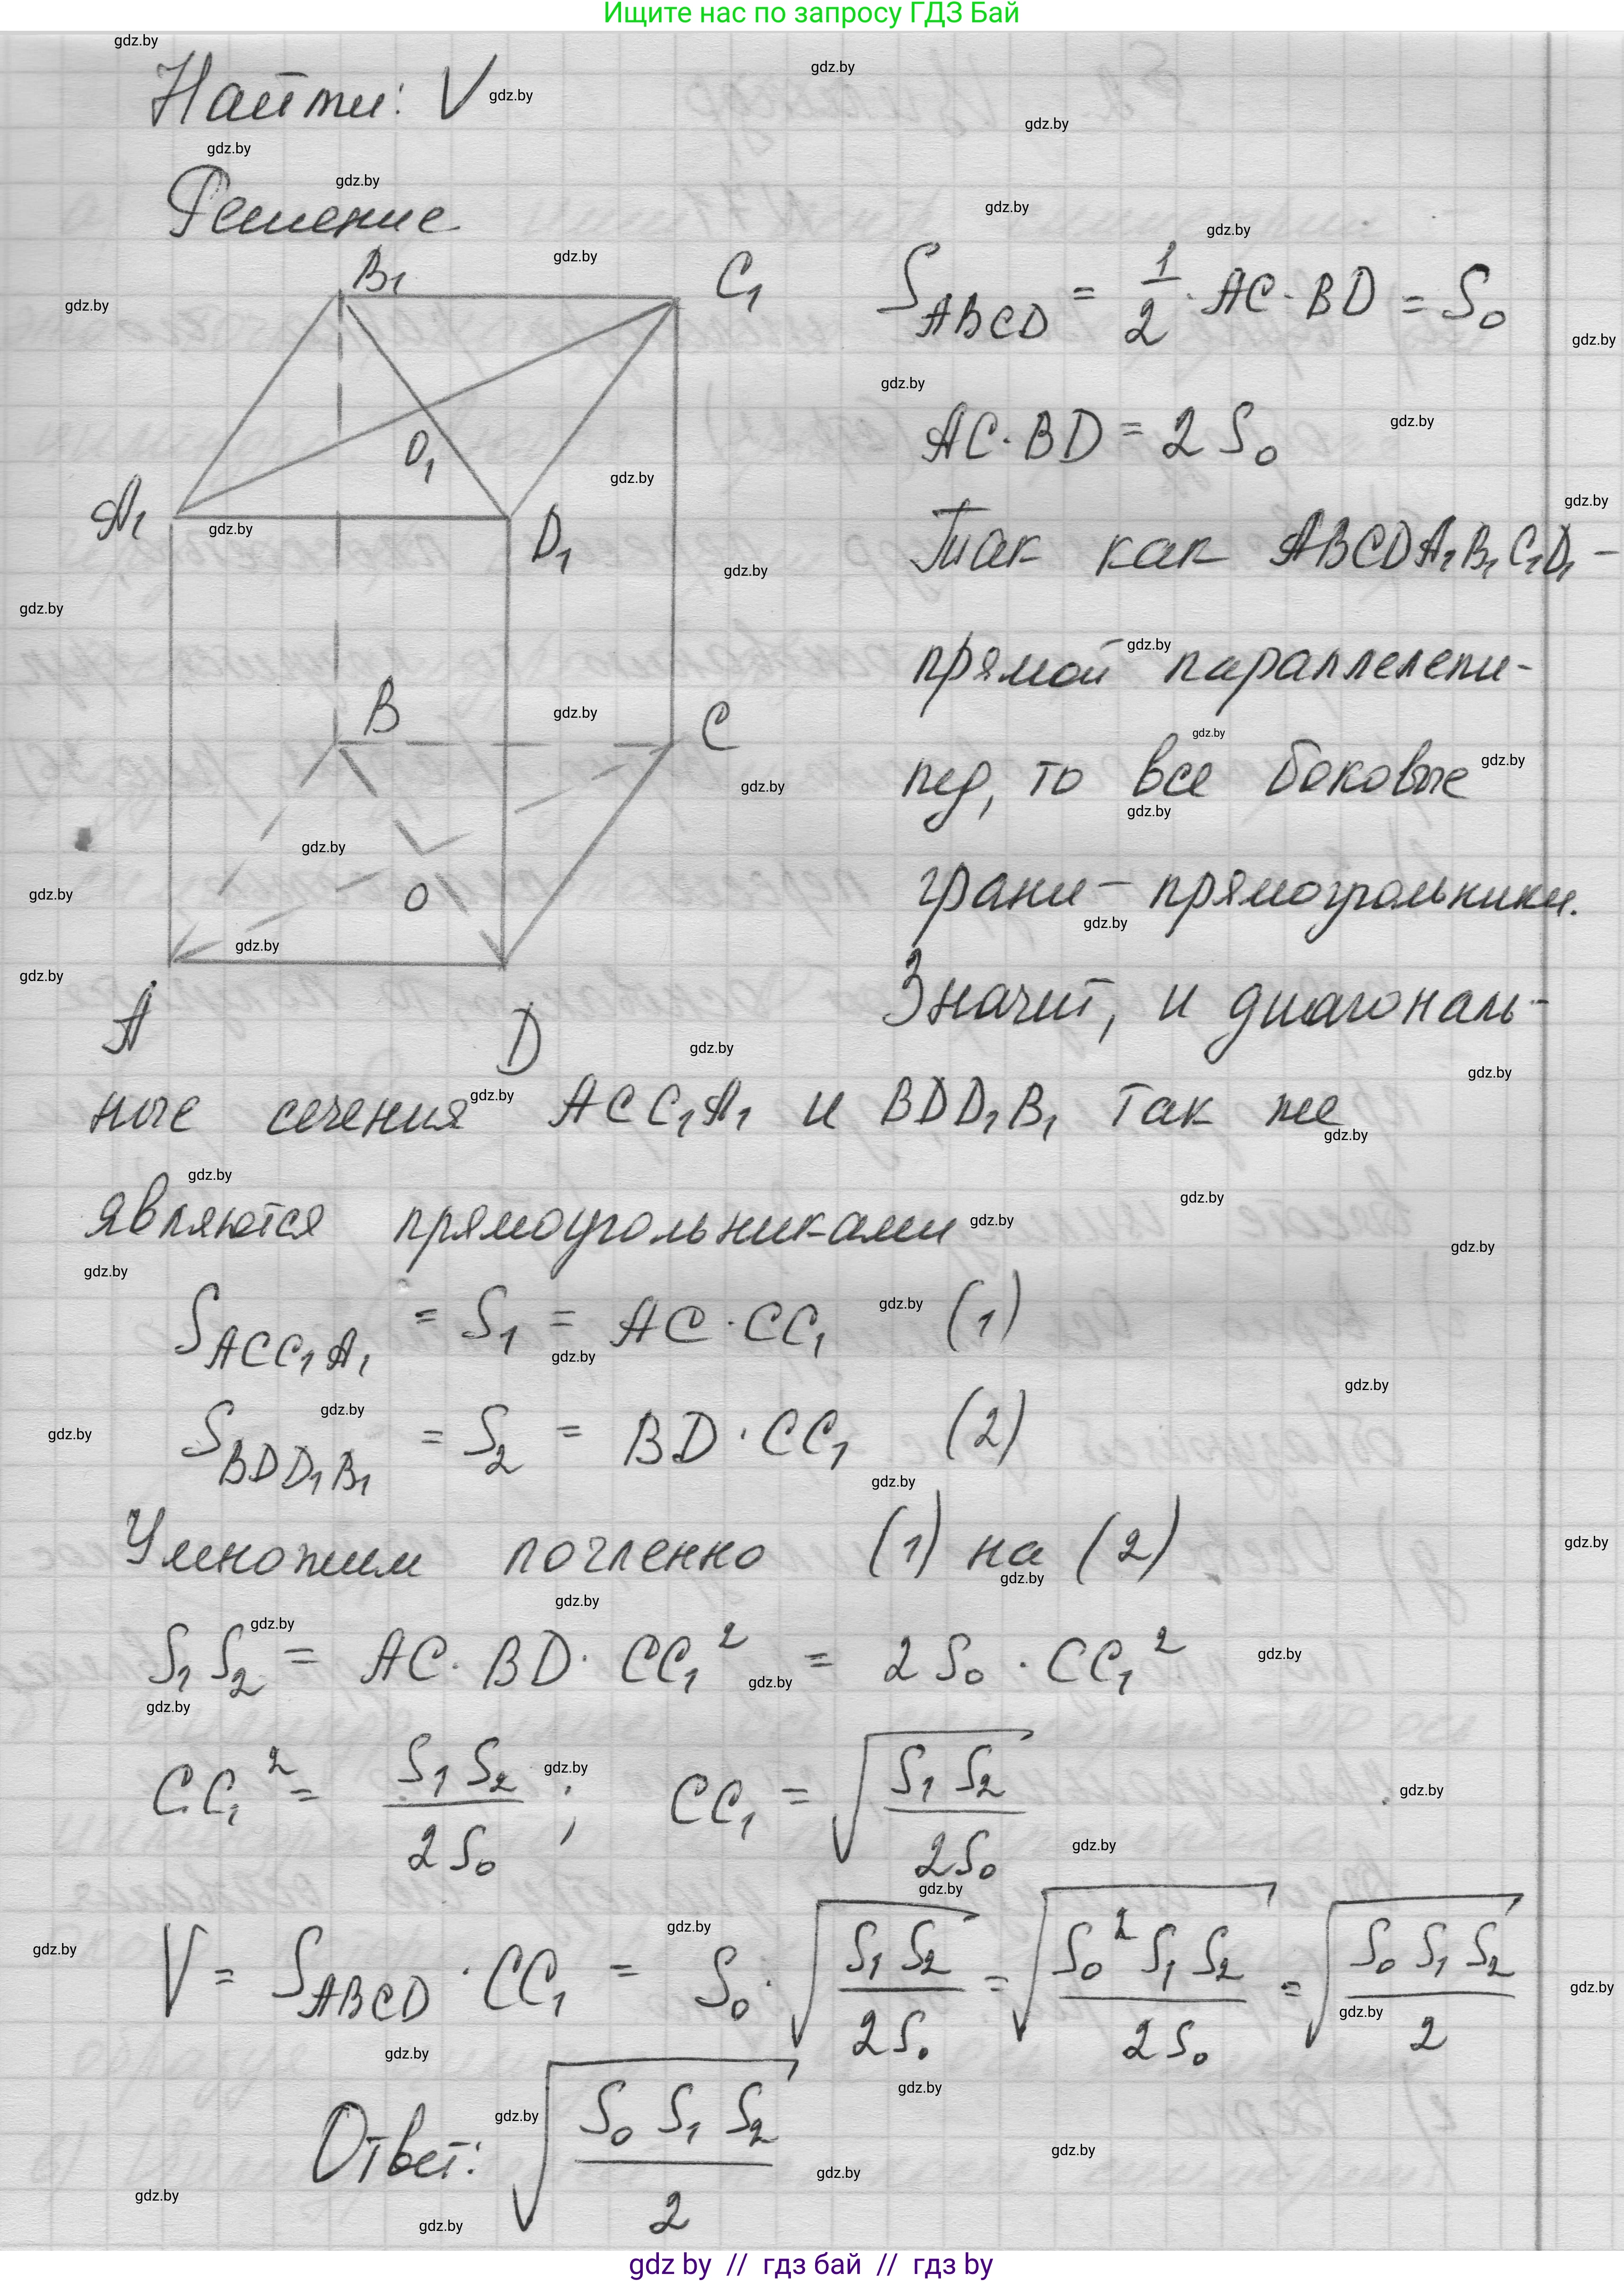 Ищите нас по запросу ГДЗ Бай
Найти: V
Решение
B₁
C₁
O₁
A₁
D₁
B
C
O
A
D
S_ABCD = 1/2 · AC · BD = S₀
AC · BD = 2 S₀
Так как ABCDA₁B₁C₁D₁ –
прямой параллелепи-
пед, то все боковые
грани – прямоугольники.
Значит, и диагональ-
ные сечения ACC₁A₁ и BDD₁B₁ так же
являются прямоугольниками
S_ACC₁A₁ = S₁ = AC · CC₁ (1)
S_BDD₁B₁ = S₂ = BD · CC₁ (2)
Умножим почленно (1) на (2)
S₁ S₂ = AC · BD · CC₁² = 2 S₀ · CC₁²
CC₁² = S₁ S₂ / 2 S₀ ; CC₁ = √(S₁ S₂ / 2 S₀)
V = S_ABCD · CC₁ = S₀ · √(S₁ S₂ / 2 S₀) = √(S₀² S₁ S₂ / 2 S₀) = √(S₀ S₁ S₂ / 2)
Ответ: √(S₀ S₁ S₂ / 2)
gdz by // гдз бай // гдз by